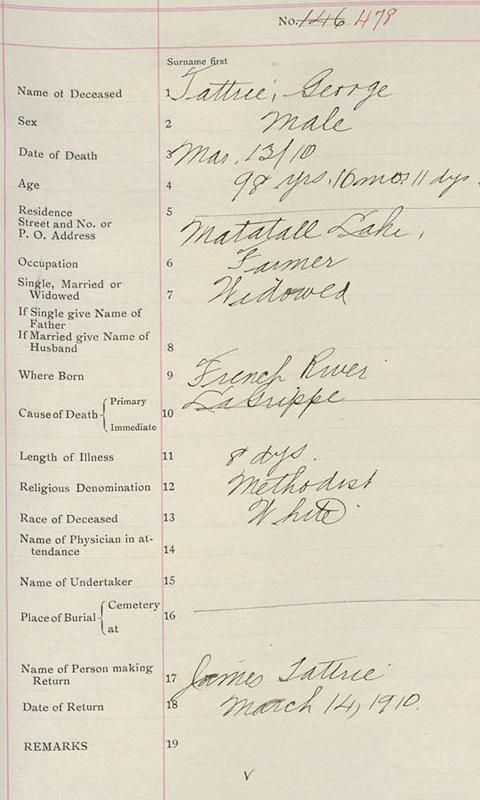 No. 146 478
Surname first
Name of Deceased 1 Tattrie, George
Sex 2 Male
Date of Death 3 Mar. 13/10
Age 4 98 yrs. 10 mos. 11 days.
Residence
Street and No. or
P. O. Address 5 Matatall Lake,
Occupation 6 Farmer
Single, Married or
Widowed 7 Widowed
If Single give Name of
Father
If Married give Name of
Husband 8
Where Born 9 French River
Cause of Death { Primary Immediate 10 LaGrippe
Length of Illness 11 8 dys.
Religious Denomination 12 Methodist
Race of Deceased 13 White
Name of Physician in at-
tendance 14
Name of Undertaker 15
Place of Burial { Cemetery at 16
Name of Person making
Return 17 James Tattrie
Date of Return 18 March 14, 1910.
REMARKS 19